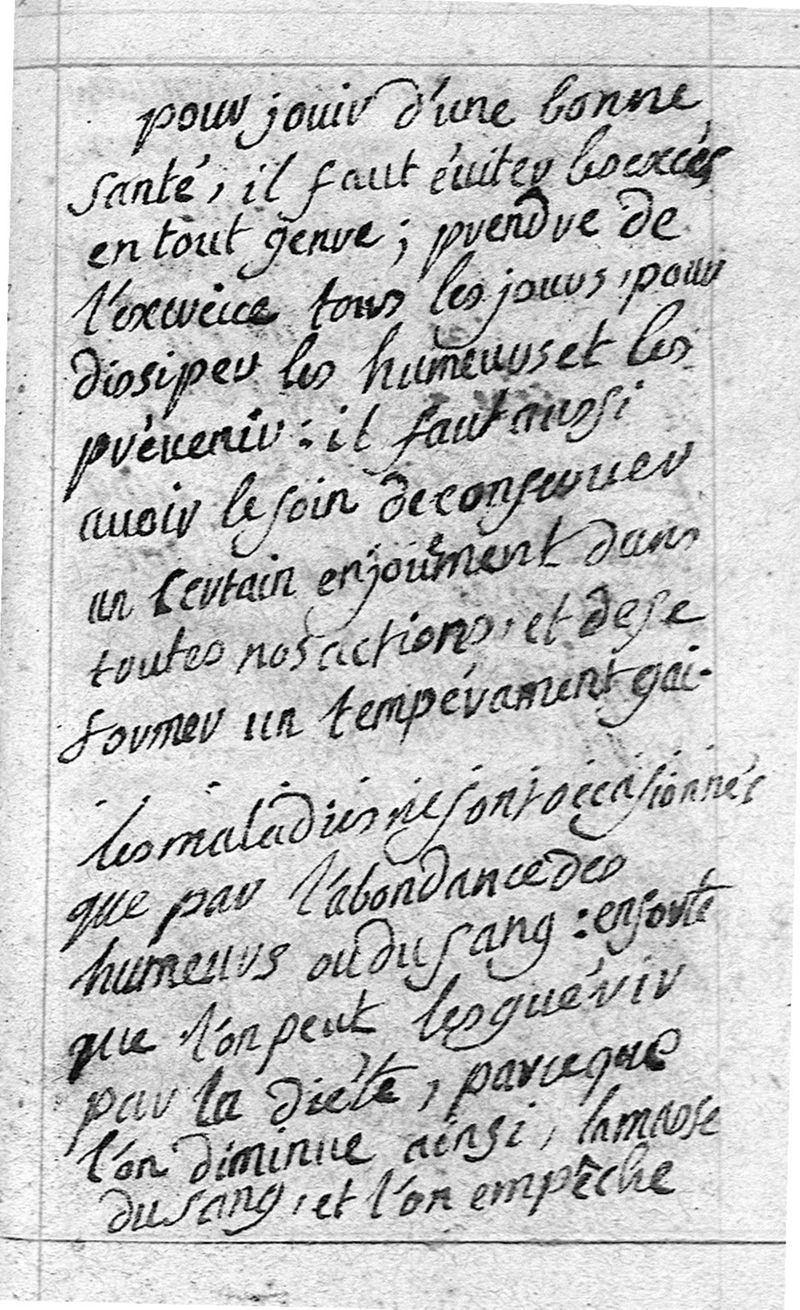 pour jouir d'une bonne
santé, il faut éviter les excès
en tout genre ; prendre de
l'exercice tous les jours, pour
dissiper les humeurs et les
prévenir : il faut aussi
avoir le soin de conserver
un certain enjoûment dans
toutes nos actions, et de se
former un tempérament gai.
les maladies ne sont occasionnées
que par l'abondance des
humeurs ou du sang : en sorte
que l'on peut les guérir
par la diéte, parce que
l'on diminue ainsi, la masse
du sang, et l'on empêche